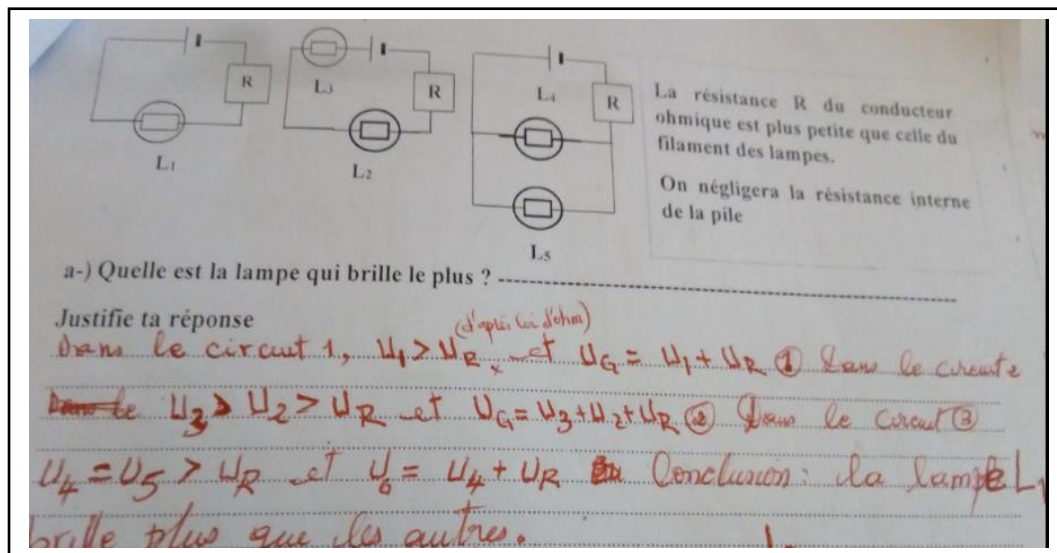 R
L3
R
L4
R
L1
L2
L5
La résistance R du conducteur
ohmique est plus petite que celle du
filament des lampes.
On négligera la résistance interne
de la pile
a-) Quelle est la lampe qui brille le plus ?
Justifie ta réponse
(d'après loi d'ohm)
Dans le circuit 1, U1 > UR et UG = U1 + UR ① Dans le circuit 2
U3 > U2 > UR et UG = U3 + U2 + UR ② Dans le circuit ③
U4 = U5 > UR et UG = U4 + UR Conclusion : la lampe L1
brille plus que les autres.